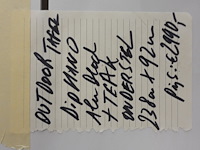 OUTDOOR TAFEL
DiphANO
Alu Dead
+ TEAK
ONDERSTEL
238cm x 92cm
Prijs: € 2990,-